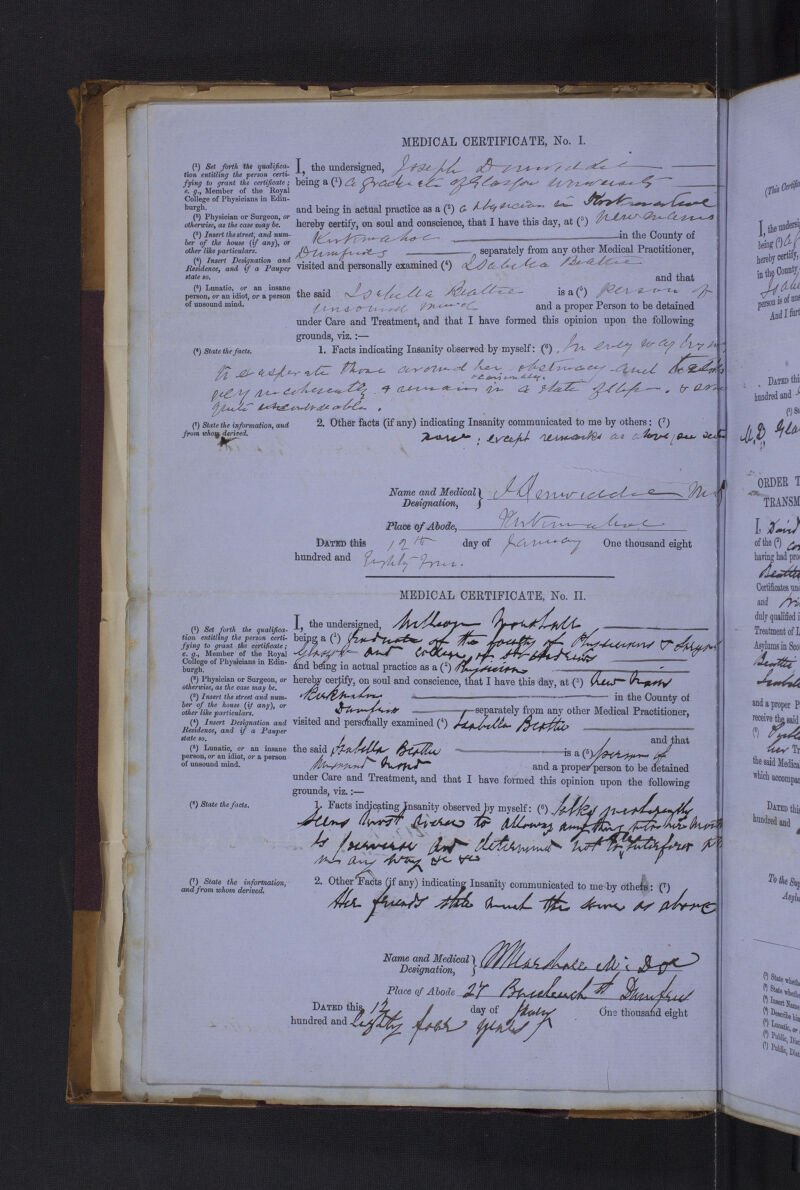 MEDICAL CERTIFICATE, No. I.
(¹) Set forth the qualifica-
tion entitling the person certi-
fying to grant the certificate;
e. g., Member of the Royal
College of Physicians in Edin-
burgh.
(²) Physician or Surgeon, or
otherwise, as the case may be.
(³) Insert the street, and num-
ber of the house (if any), or
other like particulars.
(⁴) Insert Designation and
Residence, and if a Pauper
state so.
(⁵) Lunatic, or an insane
person, or an idiot, or a person
of unsound mind.
I, the undersigned, Joseph Dinwiddie
being a (¹) a graduate of Glasgow University
and being in actual practice as a (²) a physician in Kirkmahoe
hereby certify, on soul and conscience, that I have this day, at (³) New Mains
Kirkmahoe in the County of
Dumfries separately from any other Medical Practitioner,
visited and personally examined (⁴) Isabella Beattie
and that
the said Isabella Beattie is a (⁵) person of
unsound mind and a proper Person to be detained
under Care and Treatment, and that I have formed this opinion upon the following
grounds, viz. :—
(⁶) State the facts.
1. Facts indicating Insanity observed by myself: (⁶) In every way trying
to exasperate those around her, obstinacy and talks
very incoherently & remains in a state of
quite
(⁷) State the information, and
from whom derived.
2. Other facts (if any) indicating Insanity communicated to me by others: (⁷)
none; except remarks as above
Name and Medical
Designation,
J Dinwiddie
Place of Abode, Kirkmahoe
DATED this 12th day of January One thousand eight
hundred and Eighty four.
MEDICAL CERTIFICATE, No. II.
(¹) Set forth the qualifica-
tion entitling the person certi-
fying to grant the certificate;
e. g., Member of the Royal
College of Physicians in Edin-
burgh.
(²) Physician or Surgeon, or
otherwise, as the case may be.
(³) Insert the street and num-
ber of the house (if any), or
other like particulars.
(⁴) Insert Designation and
Residence, and if a Pauper
state so.
(⁵) Lunatic, or an insane
person, or an idiot, or a person
of unsound mind.
I, the undersigned, William Marshall
being a (¹) Graduate of the faculty of Physicians &
Glasgow and college of St Andrews
and being in actual practice as a (²) Physician
hereby certify, on soul and conscience, that I have this day, at (³) New Mains
Kirkmahoe in the County of
Dumfries separately from any other Medical Practitioner,
visited and personally examined (⁴) Isabella Beattie
and that
the said Isabella Beattie is a (⁵) person of
unsound mind and a proper person to be detained
under Care and Treatment, and that I have formed this opinion upon the following
grounds, viz. :—
(⁶) State the facts.
1. Facts indicating Insanity observed by myself: (⁶) Talks incoherently
Seems most averse to allowing anything
is perverse and determined not to
in any way &c &c
(⁷) State the information,
and from whom derived.
2. Other Facts (if any) indicating Insanity communicated to me by others: (⁷)
Her friends state much the same as above
Name and Medical
Designation,
W Marshall M.D
Place of Abode 27 Buccleuch St Dumfries
DATED this 12 day of Jany One thousand eight
hundred and Eighty four years
ORDER
TRANSM
I, David